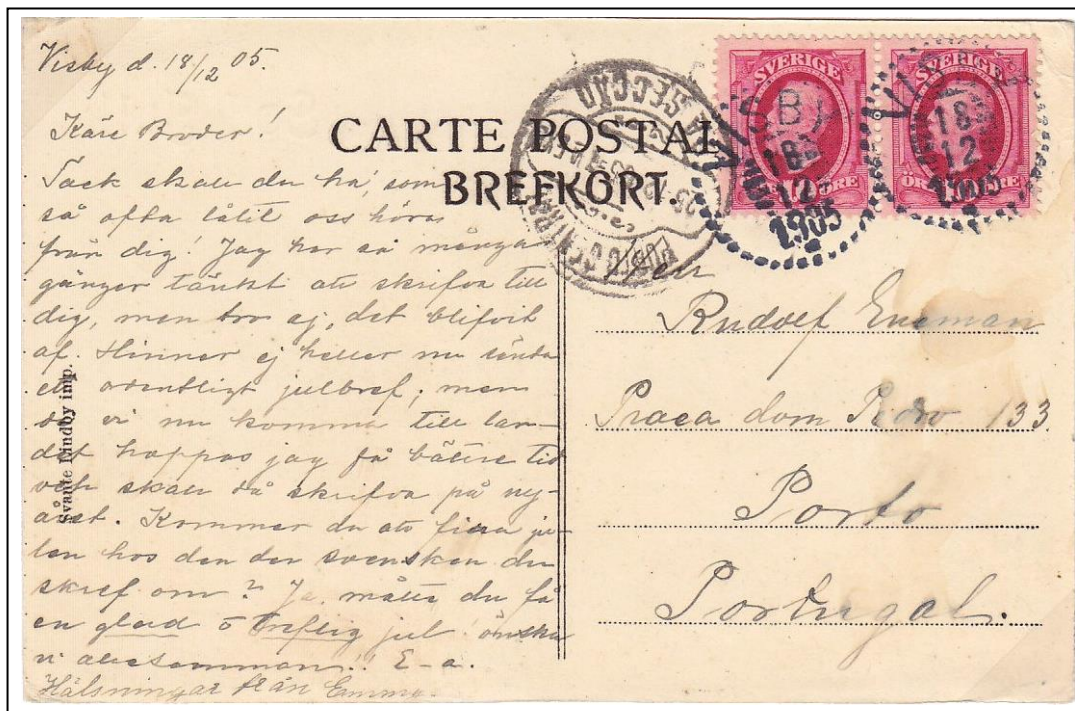 Visby d. 18/12 05.
Käre Broder!
Tack skall du ha, som
så ofta låtit oss höra
från dig! Jag har så många
gånger tänkt att skrifva till
dig, men tro ej, det blifvit
af. Hinner ej heller nu sända
ett ordentligt julbref, men
då vi nu komma till lan-
det hoppas jag få bättre tid
och skall då skrifva på ny-
året. Kommer du att fira ju-
len hos den der svensken du
skref om? Ja, måtte du få
en glad o treflig jul önska
vi allesamman!! E-a.
Hälsningar från Emma.
Svante Lindby imp.
CARTE POSTAL
BREFKORT.
SVERIGE
SVERIGE
10 ÖRE
VISBY
18
12
1905
VISBY
18
12
1905
SECÇÃO
PORTO CENTRAL
Rudolf
Praca dom Pedro 133
Porto
Portugal.